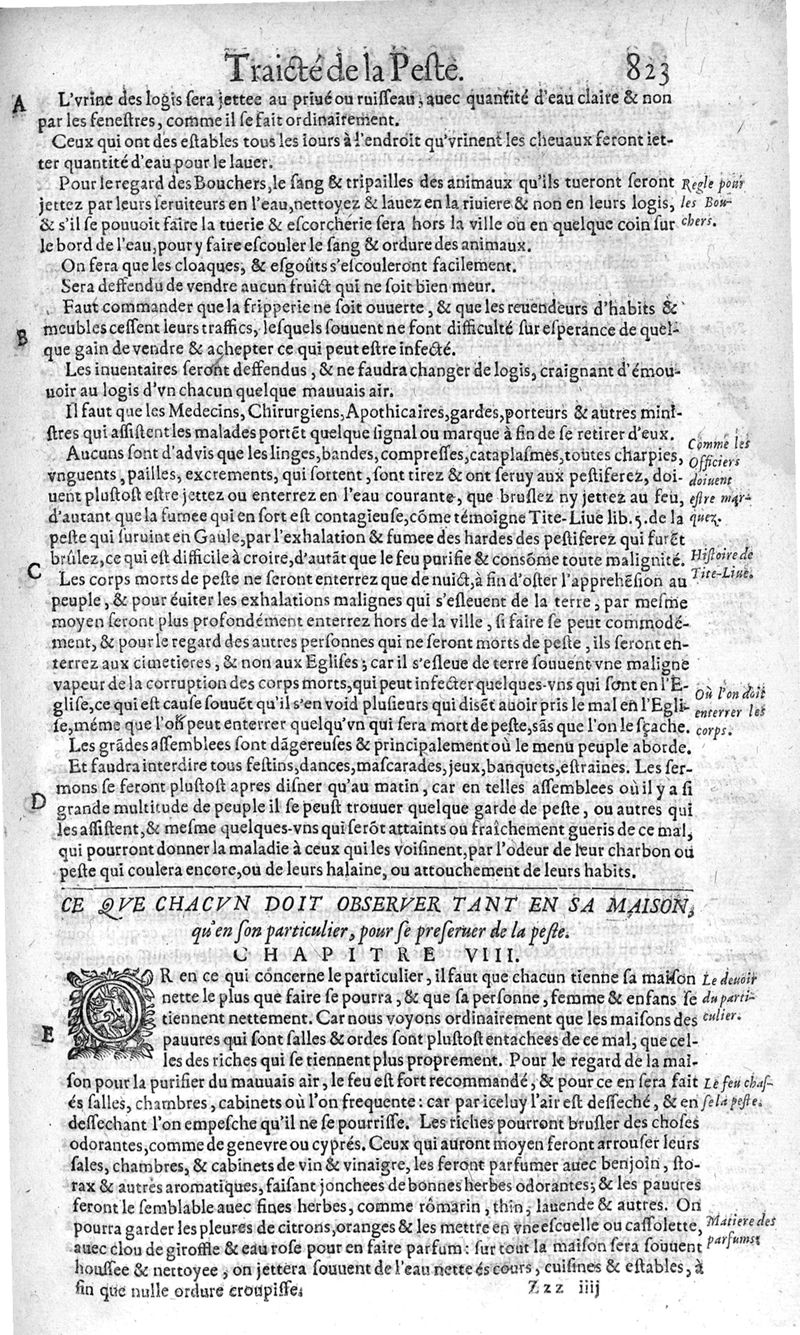 Traicté de la Peste. 823
A L'vrine des logis sera jettee au priué ou ruisseau, auec quantité d'eau claire & non
par les fenestres, comme il se fait ordinairement.
Ceux qui ont des estables tous les iours à l'endroit qu'vrinent les cheuaux feront iet-
ter quantité d'eau pour le lauer.
Pour le regard des Bouchers, le sang & tripailles des animaux qu'ils tueront seront Regle pour
jettez par leurs seruiteurs en l'eau, nettoyez & lauez en la riuiere & non en leurs logis, les Bou-
& s'il se pouuoit faire la tuerie & escorcherie sera hors la ville ou en quelque coin sur chers.
le bord de l'eau, pour y faire escouler le sang & ordure des animaux.
On fera que les cloaques, & esgoûts s'escouleront facilement.
Sera deffendu de vendre aucun fruict qui ne soit bien meur.
Faut commander que la fripperie ne soit ouuerte, & que les reuendeurs d'habits &
B meubles cessent leurs traffics, lesquels souuent ne font difficulté sur esperance de quel-
que gain de vendre & achepter ce qui peut estre infecté.
Les inuentaires seront deffendus, & ne faudra changer de logis, craignant d'émou-
uoir au logis d'vn chacun quelque mauuais air.
Il faut que les Medecins, Chirurgiens, Apothicaires, gardes, porteurs & autres mini-
stres qui assistent les malades portẽt quelque signal ou marque à fin de se retirer d'eux. Comme les
Aucuns sont d'advis que les linges, bandes, compresses, cataplasmes, toutes charpies, Officiers
vnguents, pailles, excrements, qui sortent, sont tirez & ont seruy aux pestiferez, doi- doiuent
uent plustost estre jettez ou enterrez en l'eau courante, que bruslez ny jettez au feu, estre mar-
d'autant que la fumee qui en sort est contagieuse, cõme témoigne Tite-Liue lib. 5. de la quez.
peste qui suruint en Gaule, par l'exhalation & fumee des hardes des pestiferez qui furẽt
brûlez, ce qui est difficile à croire, d'autãt que le feu purifie & consõme toute malignité. Histoire de
C Les corps morts de peste ne seront enterrez que de nuict, à fin d'oster l'apprehẽsion au Tite-Liue.
peuple, & pour éuiter les exhalations malignes qui s'esleuent de la terre, par mesme
moyen seront plus profondément enterrez hors de la ville, si faire se peut commodé-
ment, & pour le regard des autres personnes qui ne seront morts de peste, ils seront en-
terrez aux cimetieres, & non aux Eglises; car il s'esleue de terre souuent vne maligne
vapeur de la corruption des corps morts, qui peut infecter quelques-vns qui sont en l'E- Où l'on doit
glise, ce qui est cause souuẽt qu'il s'en void plusieurs qui disẽt auoir pris le mal en l'Egli- enterrer les
se, méme que l'on peut enterrer quelqu'vn qui sera mort de peste, sãs que l'on le sçache. corps.
Les grãdes assemblees sont dãgereuses & principalement où le menu peuple aborde.
Et faudra interdire tous festins, dances, mascarades, jeux, banquets, estraines. Les ser-
D mons se feront plustost apres disner qu'au matin, car en telles assemblees où il y a si
grande multitude de peuple il se peust trouuer quelque garde de peste, ou autres qui
les assistent, & mesme quelques-vns qui serõt attaints ou fraîchement gueris de ce mal,
qui pourront donner la maladie à ceux qui les voisinent, par l'odeur de leur charbon ou
peste qui coulera encore, ou de leurs halaine, ou attouchement de leurs habits.
CE QVE CHACVN DOIT OBSERVER TANT EN SA MAISON,
qu'en son particulier, pour se preseruer de la peste.
CHAPITRE VIII.
OR en ce qui concerne le particulier, il faut que chacun tienne sa maison Le deuoir
nette le plus que faire se pourra, & que sa personne, femme & enfans se du parti-
E tiennent nettement. Car nous voyons ordinairement que les maisons des culier.
pauures qui sont salles & ordes sont plustost entachees de ce mal, que cel-
les des riches qui se tiennent plus proprement. Pour le regard de la mai-
son pour la purifier du mauuais air, le feu est fort recommandé, & pour ce en sera fait Le feu chas-
és salles, chambres, cabinets où l'on frequente: car par iceluy l'air est desseché, & en se la peste.
dessechant l'on empesche qu'il ne se pourrisse. Les riches pourront brusler des choses
odorantes, comme de genevre ou cyprés. Ceux qui auront moyen feront arrouser leurs
sales, chambres, & cabinets de vin & vinaigre, les feront parfumer auec benjoin, sto-
rax & autres aromatiques, faisant jonchees de bonnes herbes odorantes; & les pauures
feront le semblable auec fines herbes, comme rômarin, thin, lauende & autres. On
pourra garder les pleures de citrons, oranges & les mettre en vne escuelle ou cassolette, Matiere des
auec clou de giroffle & eau rose pour en faire parfum: sur tout la maison sera souuent parfums:
houssee & nettoyee, on jettera souuent de l'eau nette és cours, cuisines & estables, à
fin que nulle ordure croupisse. Zzz iiij